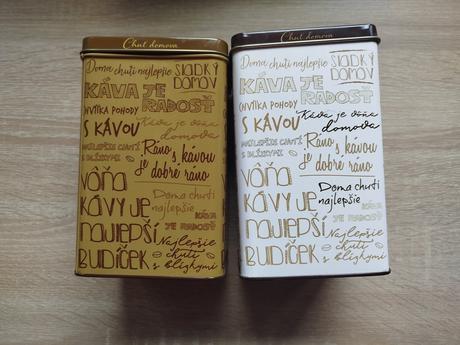 Chuť domova
Doma chutí najlepšie
SLADKÝ
DOMOV
KÁVA JE
RADOSŤ
CHVÍĽKA POHODY
S KÁVOU
Káva je vôňa
domova
NAJLEPŠIE CHUTÍ
S BLÍZKYMI
Ráno s kávou
je dobré ráno
VÔŇA
KÁVY JE
NAJLEPŠÍ
BUDÍČEK
Doma chutí
najlepšie
KÁVA
JE RADOSŤ
Najlepšie
chutí
s blízkymi
Chuť domova
Doma chutí najlepšie
SLADKÝ
DOMOV
KÁVA JE
RADOSŤ
CHVÍĽKA POHODY
S KÁVOU
Káva je vôňa
domova
NAJLEPŠIE CHUTÍ
S BLÍZKYMI
Ráno s kávou
je dobré ráno
VÔŇA
KÁVY JE
NAJLEPŠÍ
BUDÍČEK
Doma chutí
najlepšie
KÁVA
JE RADOSŤ
Najlepšie
chutí
s blízkymi